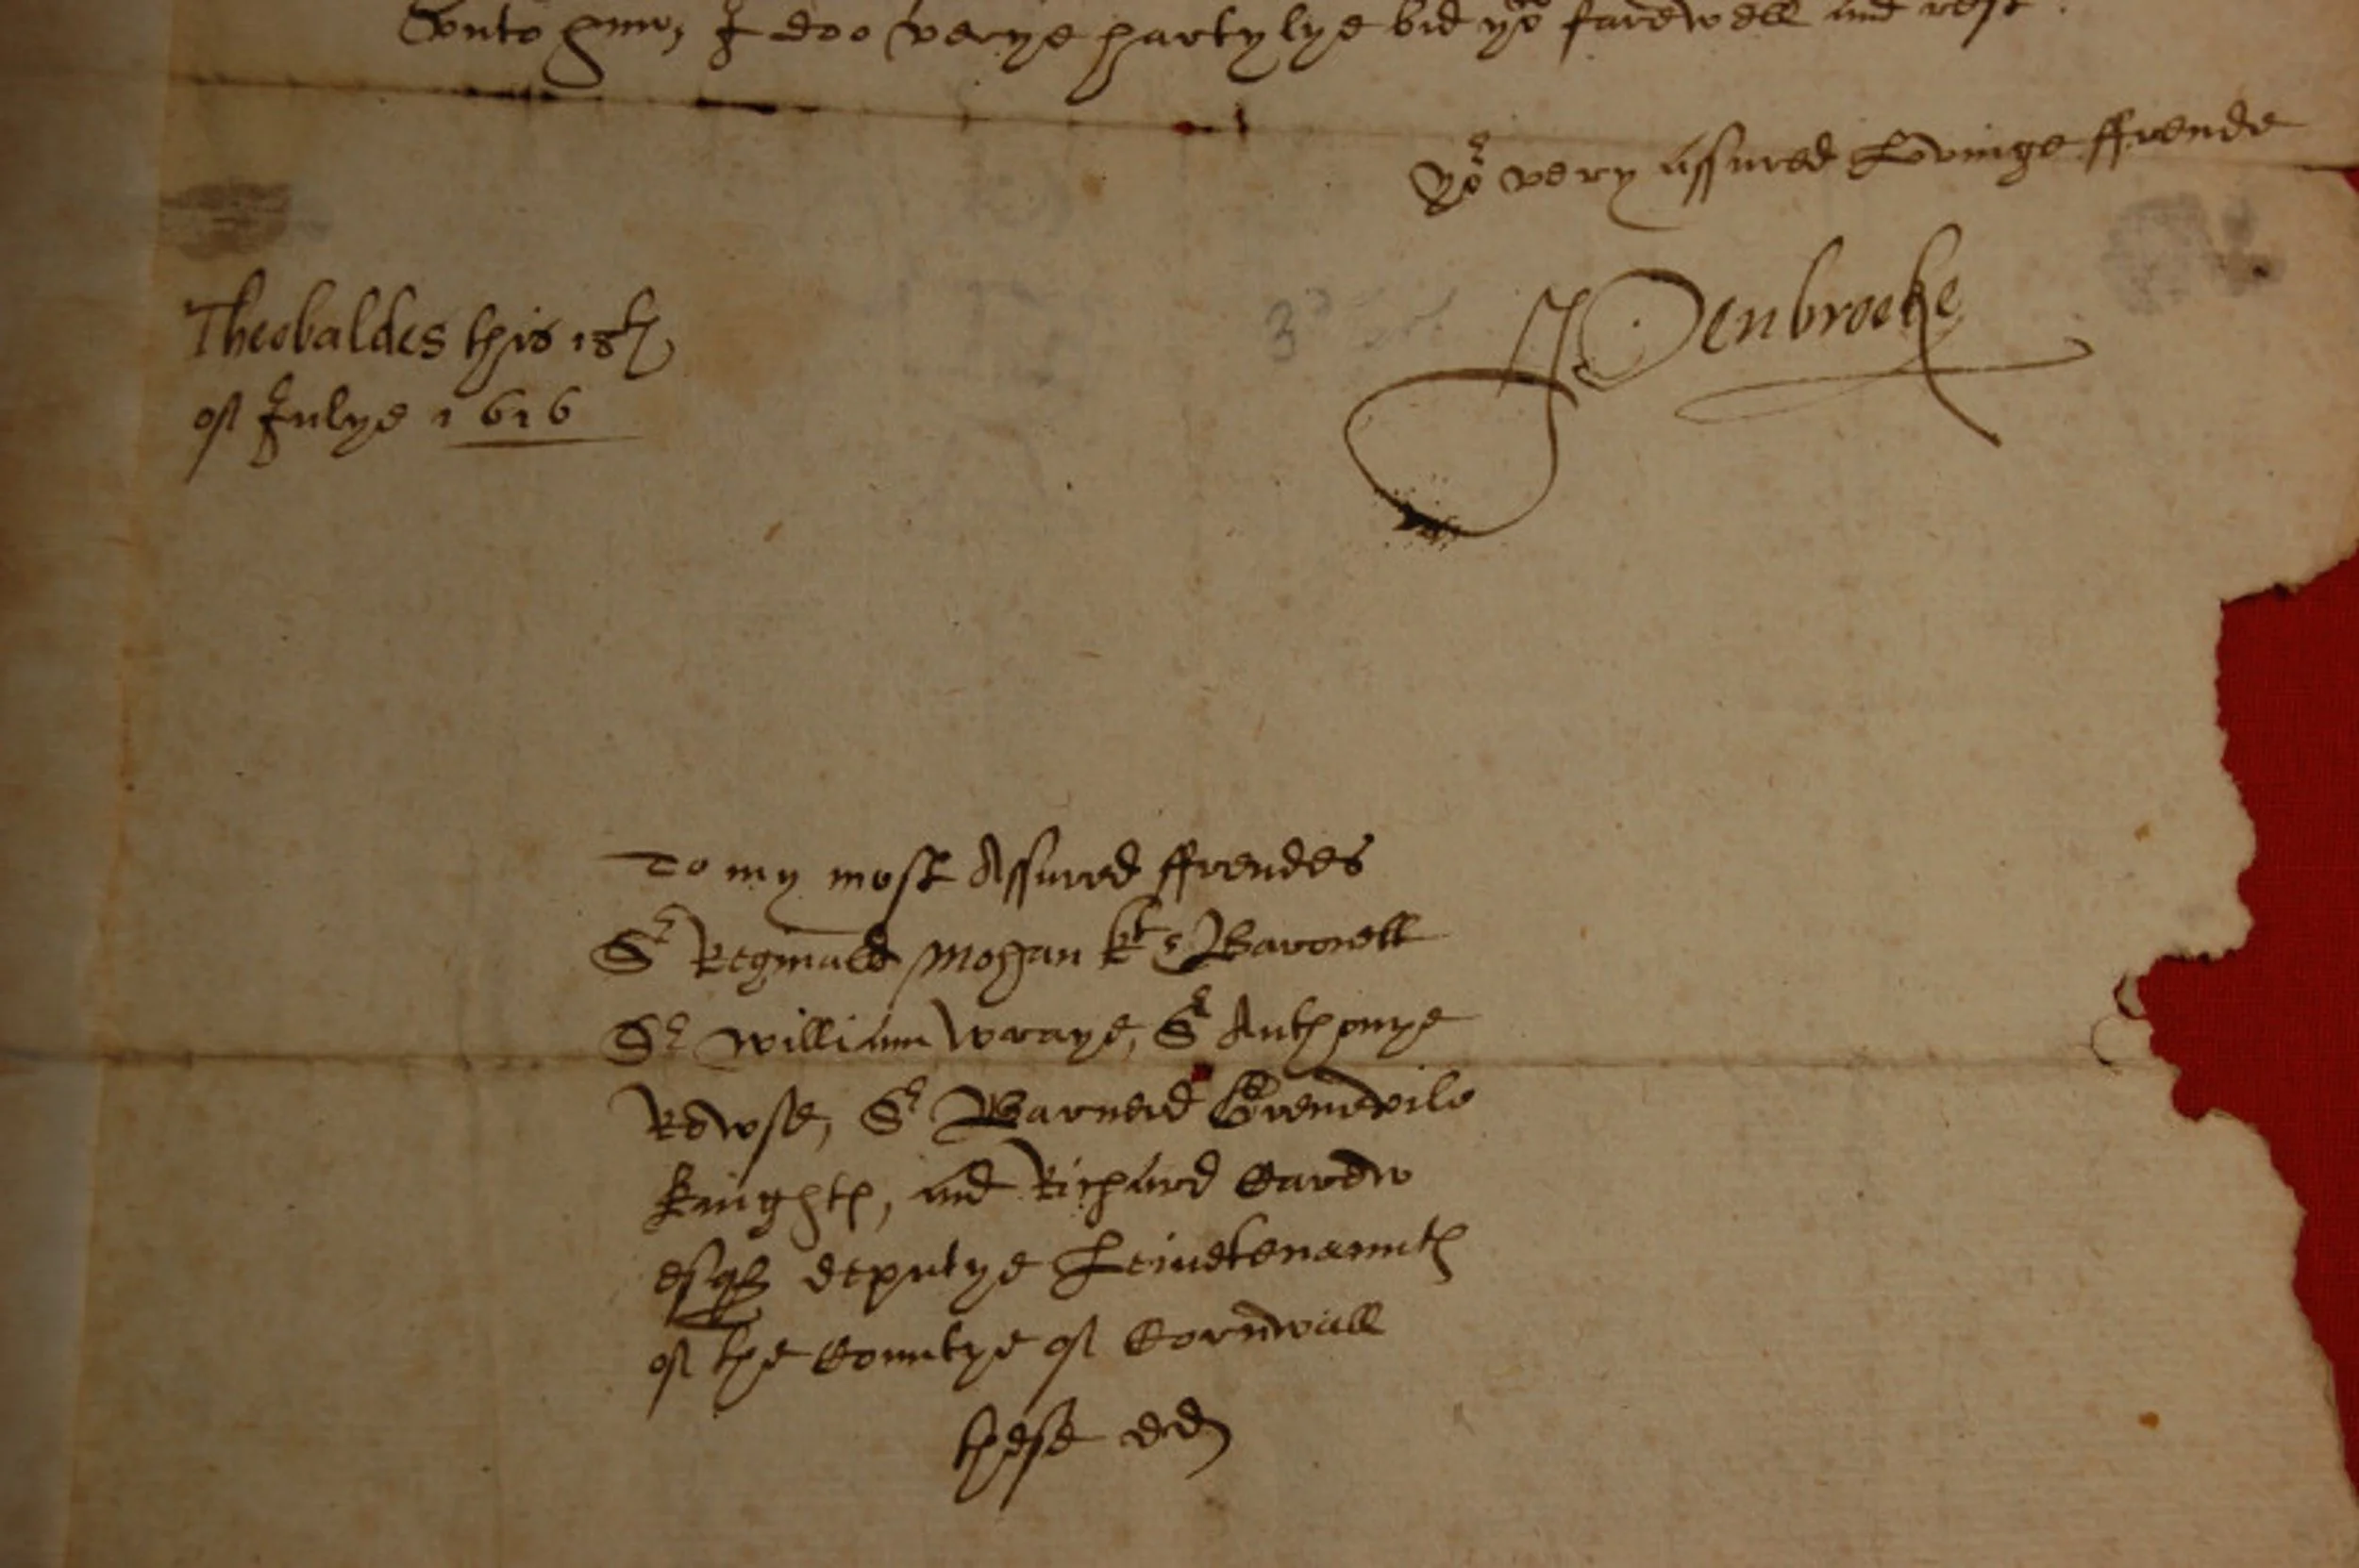 vnto him, I doo verye hartylye bid you farewell and rest.
Yor very assured Lovinge ffrende
Penbrooke
Theobaldes this 18th
of Julye 1616
3
To my most Assured ffrendes
Sr Reginald Mohan kt & Baronett
Sr William Wraye, Sr Anthonye
Rowse, Sr Barnerd Grenevile
knightes, and Richard Carew
esqr deputye Leiuetenanntes
of the Countye of Cornwall
these dd